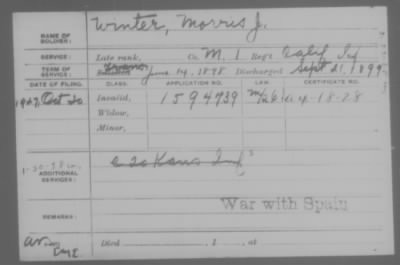 NAME OF SOLDIER: Winter, Morris J.
SERVICE: Late rank, Co. M, 1 Reg't Calif Inf
TERM OF SERVICE: Enlisted 1898 Discharged Sept 21, 1899
DATE OF FILING. CLASS. APPLICATION NO. LAW. CERTIFICATE NO.
1927, Oct 20 Invalid, 1594739
Widow,
Minor,
ADDITIONAL SERVICES: E 20 Kans Inf
War with Spain
REMARKS:
Died , 1 , at